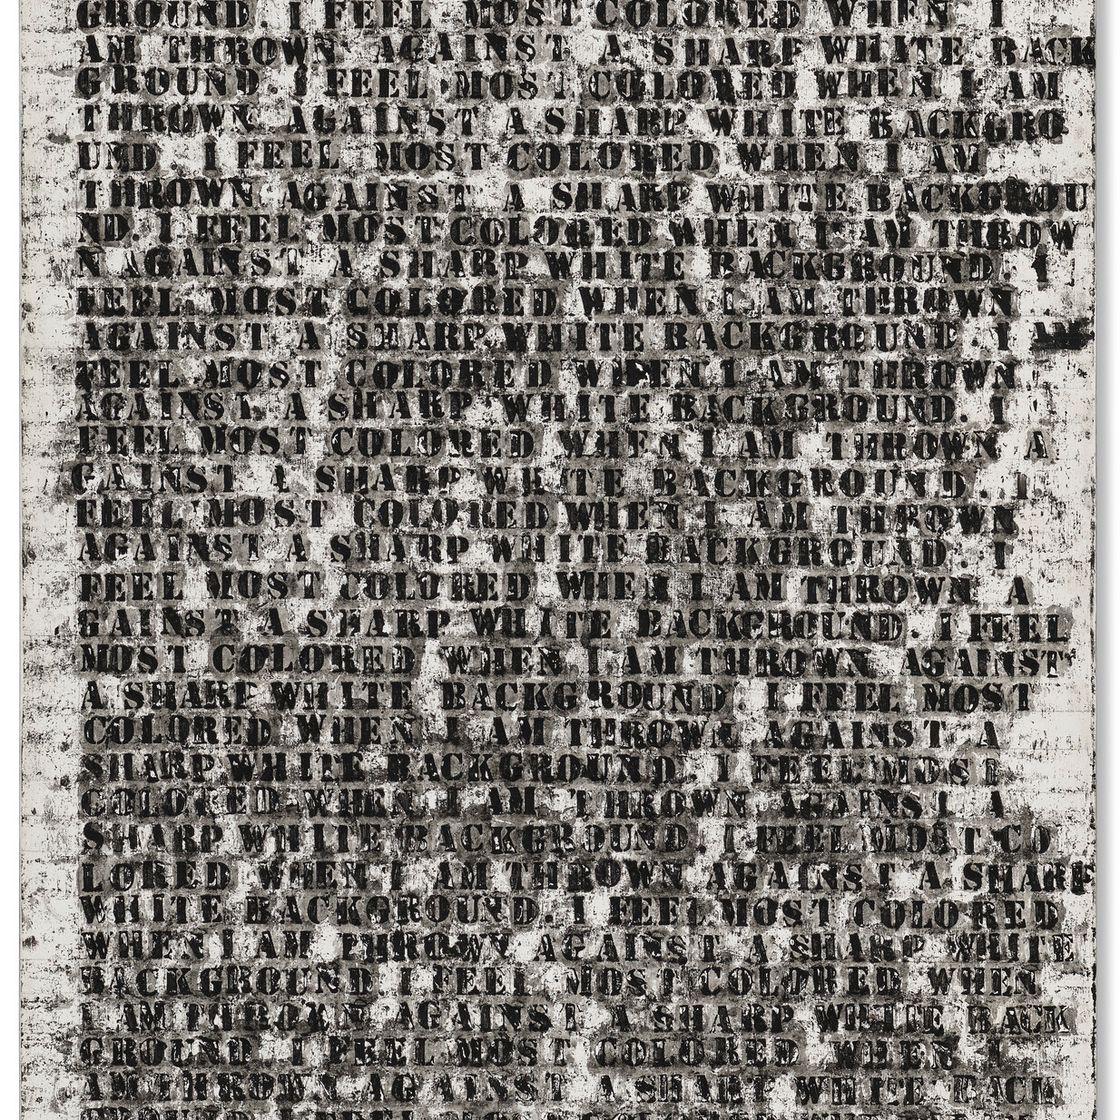 GROUND. I FEEL MOST COLORED WHEN I
AM THROWN AGAINST A SHARP WHITE BACK
GROUND I FEEL MOST COLORED WHEN I AM
THROWN AGAINST A SHARP WHITE BACKGRO
UND. I FEEL MOST COLORED WHEN I AM
THROWN AGAINST A SHARP WHITE BACKGROU
ND. I FEEL MOST COLORED WHEN I AM THROW
N AGAINST A SHARP WHITE BACKGROUND. I
FEEL MOST COLORED WHEN I AM THROWN
AGAINST A SHARP WHITE BACKGROUND. I AM
FEEL MOST COLORED WHEN I AM THROWN
AGAINST A SHARP WHITE BACKGROUND. I
FEEL MOST COLORED WHEN I AM THROWN A
GAINST A SHARP WHITE BACKGROUND. I
FEEL MOST COLORED WHEN I AM THROWN
AGAINST A SHARP WHITE BACKGROUND. I
FEEL MOST COLORED WHEN I AM THROWN A
GAINST A SHARP WHITE BACKGROUND. I FEEL
MOST COLORED WHEN I AM THROWN AGAINST
A SHARP WHITE BACKGROUND I FEEL MOST
COLORED WHEN I AM THROWN AGAINST A
SHARP WHITE BACKGROUND. I FEEL MOST
COLORED WHEN I AM THROWN AGAINST A
SHARP WHITE BACKGROUND. I FEEL MOST CO
LORED WHEN I AM THROWN AGAINST A SHARP
WHITE BACKGROUND. I FEEL MOST COLORED
WHEN I AM THROWN AGAINST A SHARP WHITE
BACKGROUND I FEEL MOST COLORED WHEN
I AM THROWN AGAINST A SHARP WHITE BACK
GROUND I FEEL MOST COLORED WHEN I
AM THROWN AGAINST A SHARP WHITE BACK